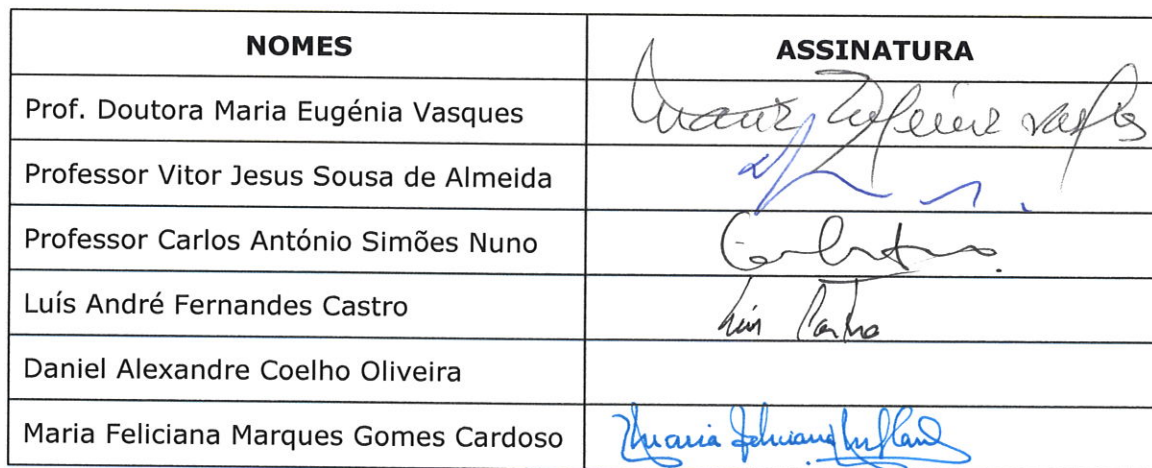 NOMES ASSINATURA
Prof. Doutora Maria Eugénia Vasques Maria Eugénia Vasques
Professor Vitor Jesus Sousa de Almeida
Professor Carlos António Simões Nuno
Luís André Fernandes Castro Luís Castro
Daniel Alexandre Coelho Oliveira
Maria Feliciana Marques Gomes Cardoso Maria Feliciana